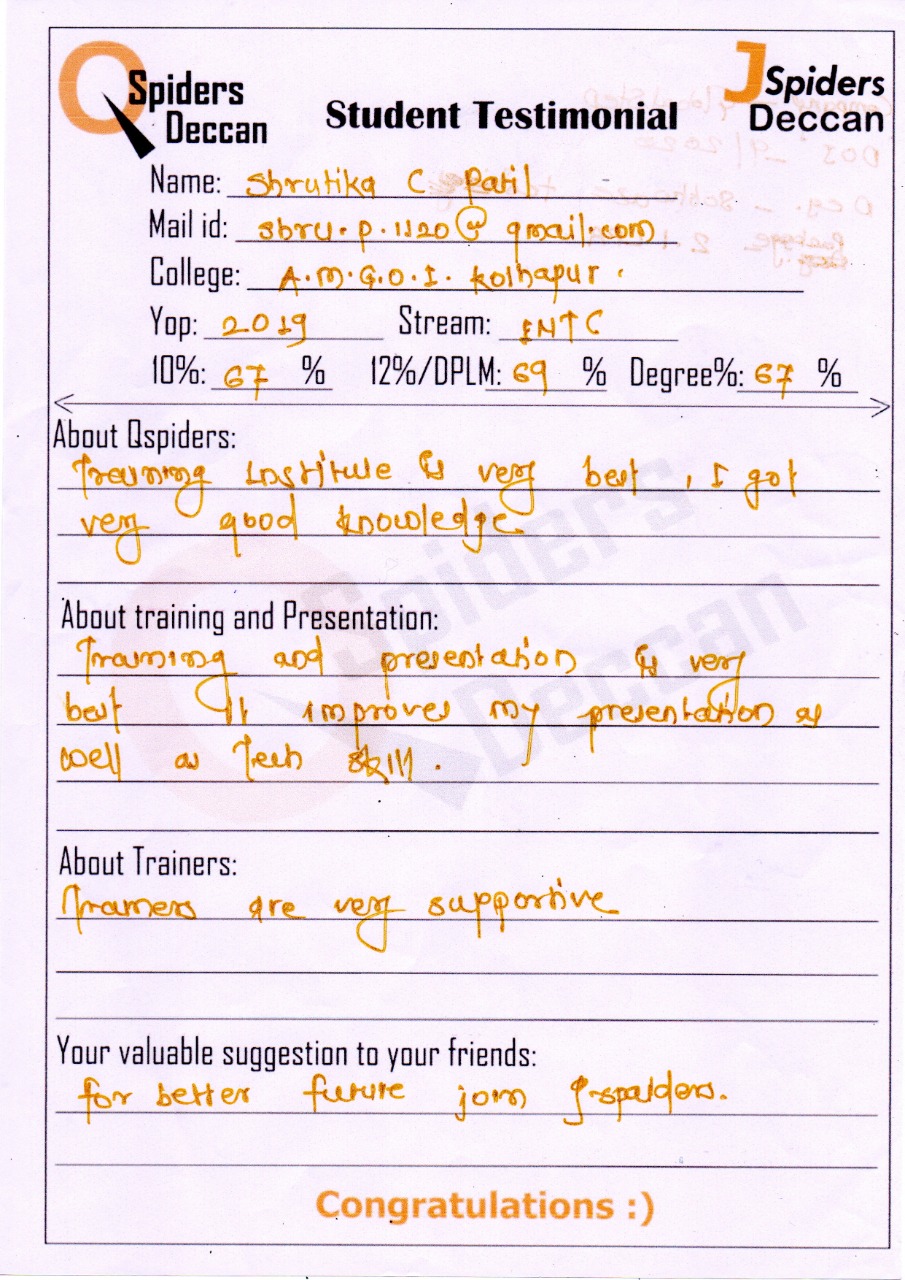 QSpiders
Deccan
JSpiders
Deccan
Student Testimonial
Name: Shrutika C Patil
Mail id: shru.p.1120@gmail.com
College: A.M.G.O.I. Kolhapur.
Yop: 2019 Stream: ENTC
10%: 67 % 12%/DPLM: 69 % Degree%: 67 %
About Qspiders:
Training Institute is very best, I got
very good knowledge
About training and Presentation:
Training and presentation is very
best It improves my presentation as
well as Tech skill.
About Trainers:
Trainers are very supportive
Your valuable suggestion to your friends:
for better future join J-spaiders.
Congratulations :)